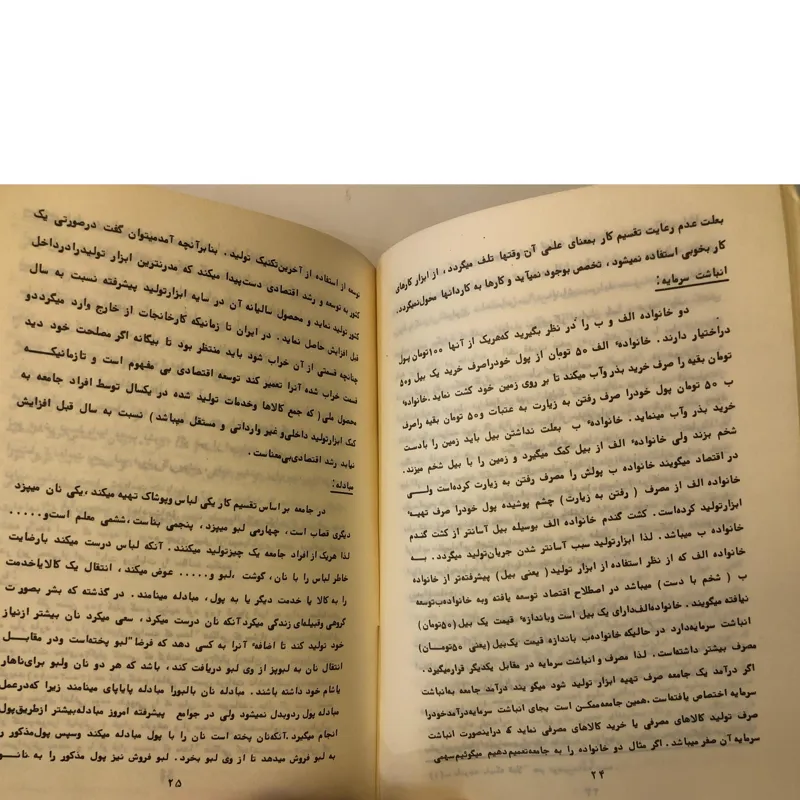 بعلت عدم رعایت تقسیم کار بمعنای علمی آن وقتها تلف میگردد، از ابزار کارهای
کار بخوبی استفاده نمیشود، تخصص بوجود نمیآید و کارها به کاردانها محول نمیگردد.
انباشت سرمایه:
دو خانواده الف و ب را در نظر بگیرید که هریک از آنها ۱۰۰ تومان پول
دراختیار دارند. خانواده الف ۵۰ تومان از پول خودرا صرف خرید یک بیل و ۵۰
تومان بقیه را صرف خرید بذر وآب میکند تا بر روی زمین خود کشت نماید. خانواده
ب ۵۰ تومان پول خودرا صرف رفتن به زیارت به عتبات و ۵۰ تومان بقیه راصرف
خرید بذر وآب مینماید. خانواده ب بعلت نداشتن بیل باید زمین را بادست
شخم بزند ولی خانواده الف از بیل کمک میگیرد و زمین را با بیل شخم میزند.
در اقتصاد میگویند خانواده ب پولش را مصرف رفتن به زیارت کرده است ولی
خانواده الف از مصرف (رفتن به زیارت) چشم پوشیده پول خودرا صرف تهیه
ابزارتولید کرده است. کشت گندم خانواده الف بوسیله بیل آسانتر از کشت گندم
خانواده ب میباشد. لذا ابزارتولید سبب آسانتر شدن جریان تولید میگردد. به
خانواده الف که از نظر استفاده از ابزار تولید (یعنی بیل) پیشرفته‌تر از خانواده
ب (شخم با دست) میباشد در اصطلاح اقتصاد توسعه یافته وبه خانواده ب توسعه
نیافته میگویند. خانواده الف دارای یک بیل است وباندازه قیمت یک بیل (۵۰ تومان)
انباشت سرمایه دارد در حالیکه خانواده ب باندازه قیمت یک بیل (یعنی ۵۰ تومان)
مصرف بیشتر داشته است. لذا مصرف و انباشت سرمایه در مقابل یکدیگر قرار میگیرد.
اگر درآمد یک جامعه صرف تهیه ابزار تولید شود میگویند درآمد جامعه به انباشت
سرمایه اختصاص یافته است. همین جامعه ممکن است بجای انباشت سرمایه درآمد خودرا
صرف تولید کالاهای مصرفی یا خرید کالاهای مصرفی نماید که دراینصورت انباشت
سرمایه آن صفر میباشد. اگر مثال دو خانواده را به جامعه تعمیم دهیم میگوئیم سهمی
۲۴
توسعه از استفاده از آخرین تکنیک تولید. بنابرآنچه آمد میتوان گفت درصورتی یک
کشور به توسعه و رشد اقتصادی دست پیدا میکند که مدرنترین ابزار تولید رادرداخل
کشور تولید نماید و محصول سالیانه آن در سایه ابزارتولید پیشرفته نسبت به سال
قبل افزایش حاصل نماید. در ایران تا زمانیکه کارخانجات از خارج وارد میگردد و
چنانچه قسمتی از آن خراب شود باید منتظر بود تا بیگانه اگر مصلحت خود دید
قسمت خراب شده آنرا تعمیر کند توسعه اقتصادی بی مفهوم است و تازمانیکه
محصول ملی (که جمع کالاها وخدمات تولید شده در یکسال توسط افراد جامعه به
کمک ابزارتولید داخلی و غیر وارداتی و مستقل میباشد) نسبت به سال قبل افزایش
نیابد رشد اقتصادی بی معناست.
مبادله:
در جامعه بر اساس تقسیم کار یکی لباس وپوشاک تهیه میکند، یکی نان میپزد
دیگری قصاب است، چهارمی لبو میپزد، پنجمی بناست، ششمی معلم است و.....
لذا هریک از افراد جامعه یک چیز تولید میکنند. آنکه لباس درست میکند بارضایت
خاطر لباس را با نان، گوشت، لبو و..... عوض میکند، انتقال یک کالا یاخدمت
را به کالا یا خدمت دیگر یا به پول، مبادله مینامند. در گذشته که بشر بصورت
گروهی وقبیله‌ای زندگی میکرد آنکه نان درست میکرد، سعی میکرد نان بیشتر ازنیاز
خود تولید کند تا اضافه آنرا به کسی دهد که فرضا" لبو پخته است ودر مقابل
انتقال نان به لبوپز از وی لبو دریافت کند، باشد که هر دو نان ولبو برای ناهار
یاشام خود داشته باشند. مبادله نان بالبورا مبادله پایاپای مینامند زیرا که درعمل
مبادله پول ردوبدل نمیشود ولی در جوامع پیشرفته امروز مبادله بیشتر ازطریق پول
انجام میگیرد. آنکه نان پخته است نان را با پول مبادله میکند وسپس پول مذکور را
به لبو فروش میدهد تا از وی لبو بخرد. لبو فروش نیز پول مذکور را به نانو
۲۵